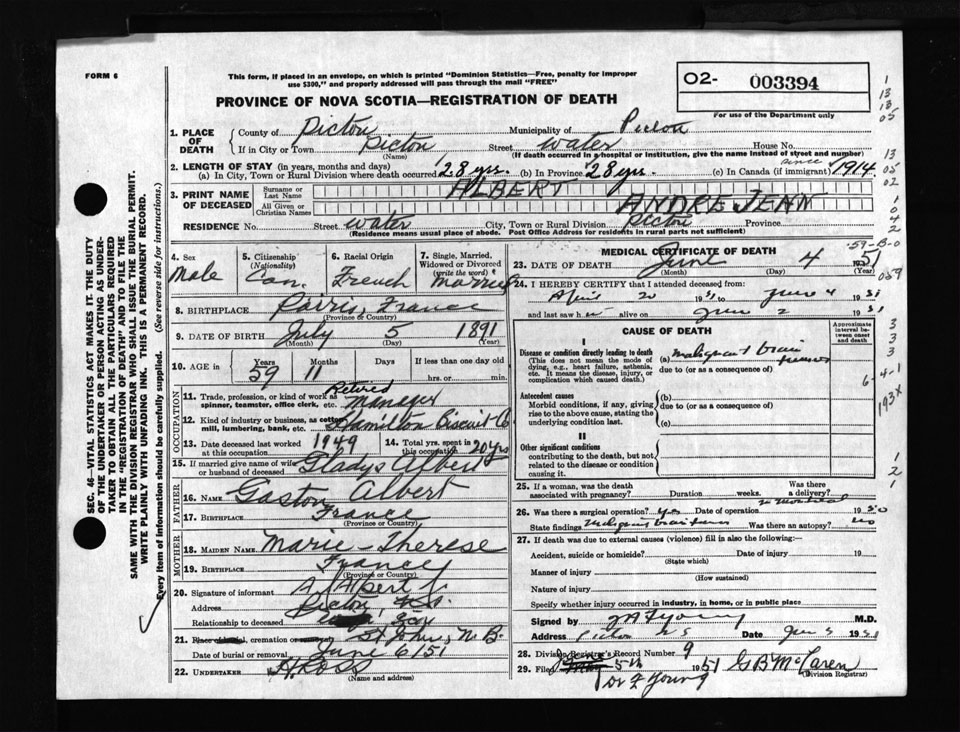 FORM 6
This form, if placed in an envelope, on which is printed "Dominion Statistics—Free, penalty for improper
use $300," and properly addressed will pass through the mail "FREE"
O2- 003394
For use of the Department only
PROVINCE OF NOVA SCOTIA—REGISTRATION OF DEATH
1. PLACE OF DEATH
County of Pictou Municipality of Pictou
If in City or Town Pictou Street Water House No.
(Name) (If death occurred in a hospital or institution, give the name instead of street and number)
2. LENGTH OF STAY (in years, months and days)
(a) In City, Town or Rural Division where death occurred 28 yrs. (b) In Province 28 yrs. (c) In Canada (if immigrant) since 1914
3. PRINT NAME OF DECEASED
Surname or Last Name ALBERT
All Given or Christian Names ANDRE JEAN
RESIDENCE No. Street Water City, Town or Rural Division Pictou Province
(Residence means usual place of abode. Post Office Address for residents in rural parts not sufficient)
4. Sex Male
5. Citizenship (Nationality) Can.
6. Racial Origin French
7. Single, Married, Widowed or Divorced (write the word) Married
8. BIRTHPLACE Parris, France
(Province or Country)
9. DATE OF BIRTH July 5 1891
(Month) (Day) (Year)
10. AGE in Years 59 Months 11 Days If less than one day old
hrs. or min.
OCCUPATION
11. Trade, profession, or kind of work as spinner, teamster, office clerk, etc. Retired Manager
12. Kind of industry or business, as cotton mill, lumbering, bank, etc. Hamilton Biscuit Co
13. Date deceased last worked at this occupation 1949
14. Total yrs. spent in this occupation 20 yrs
15. If married give name of wife or husband of deceased Gladys Albert
FATHER
16. NAME Gaston Albert
17. BIRTHPLACE France
(Province or Country)
MOTHER
18. MAIDEN NAME Marie-Therese
19. BIRTHPLACE France
(Province or Country)
20. Signature of informant A. Albert Jr.
Address Pictou, N.S.
Relationship to deceased Son
21. Place of burial, cremation or removal St John, N.B.
Date of burial or removal June 6/51
22. UNDERTAKER H. ROSS
(Name and address)
MEDICAL CERTIFICATE OF DEATH
23. DATE OF DEATH June 4 1951
(Month) (Day) (Year)
24. I HEREBY CERTIFY that I attended deceased from:
April 20 1951 to June 4 1951
and last saw h im alive on June 2 1951
CAUSE OF DEATH
Approximate interval between onset and death
I
Disease or condition directly leading to death
(This does not mean the mode of dying, e.g., heart failure, asthenia, etc. It means the disease, injury, or complication which caused death.)
(a) malignant brain tumor
due to (or as a consequence of)
Antecedent causes
Morbid conditions, if any, giving rise to the above cause, stating the underlying condition last.
(b)
due to (or as a consequence of)
(c)
II
Other significant conditions
contributing to the death, but not related to the disease or condition causing it.
25. If a woman, was the death associated with pregnancy? Duration weeks. Was there a delivery?
26. Was there a surgical operation? yes Date of operation in Montreal 1950
State findings Malignant brain tumor Was there an autopsy? no
27. If death was due to external causes (violence) fill in also the following:—
Accident, suicide or homicide? Date of injury 19
(State which)
Manner of injury
(How sustained)
Nature of injury
Specify whether injury occurred in industry, in home, or in public place
Signed by Young M.D.
Address Pictou N S Date 1951
28. Division Registrar's Record Number 9
29. Filed 5th 1951 G B McLaren
(Division Registrar)
Dr F Young
SEC. 46—VITAL STATISTICS ACT MAKES IT THE DUTY
OF THE UNDERTAKER OR PERSON ACTING AS UNDER-
TAKER TO OBTAIN ALL THE PARTICULARS REQUIRED
IN THE "REGISTRATION OF DEATH" AND TO FILE THE
SAME WITH THE DIVISION REGISTRAR WHO SHALL ISSUE THE BURIAL PERMIT.
WRITE PLAINLY WITH UNFADING INK. THIS IS A PERMANENT RECORD.
Every item of information should be carefully supplied. (See reverse side for instructions.)
1
13
13
05
13
05
02
1
0
4
2
59-B-0
059
3
3
3
6-4-1
193X
1
2
1